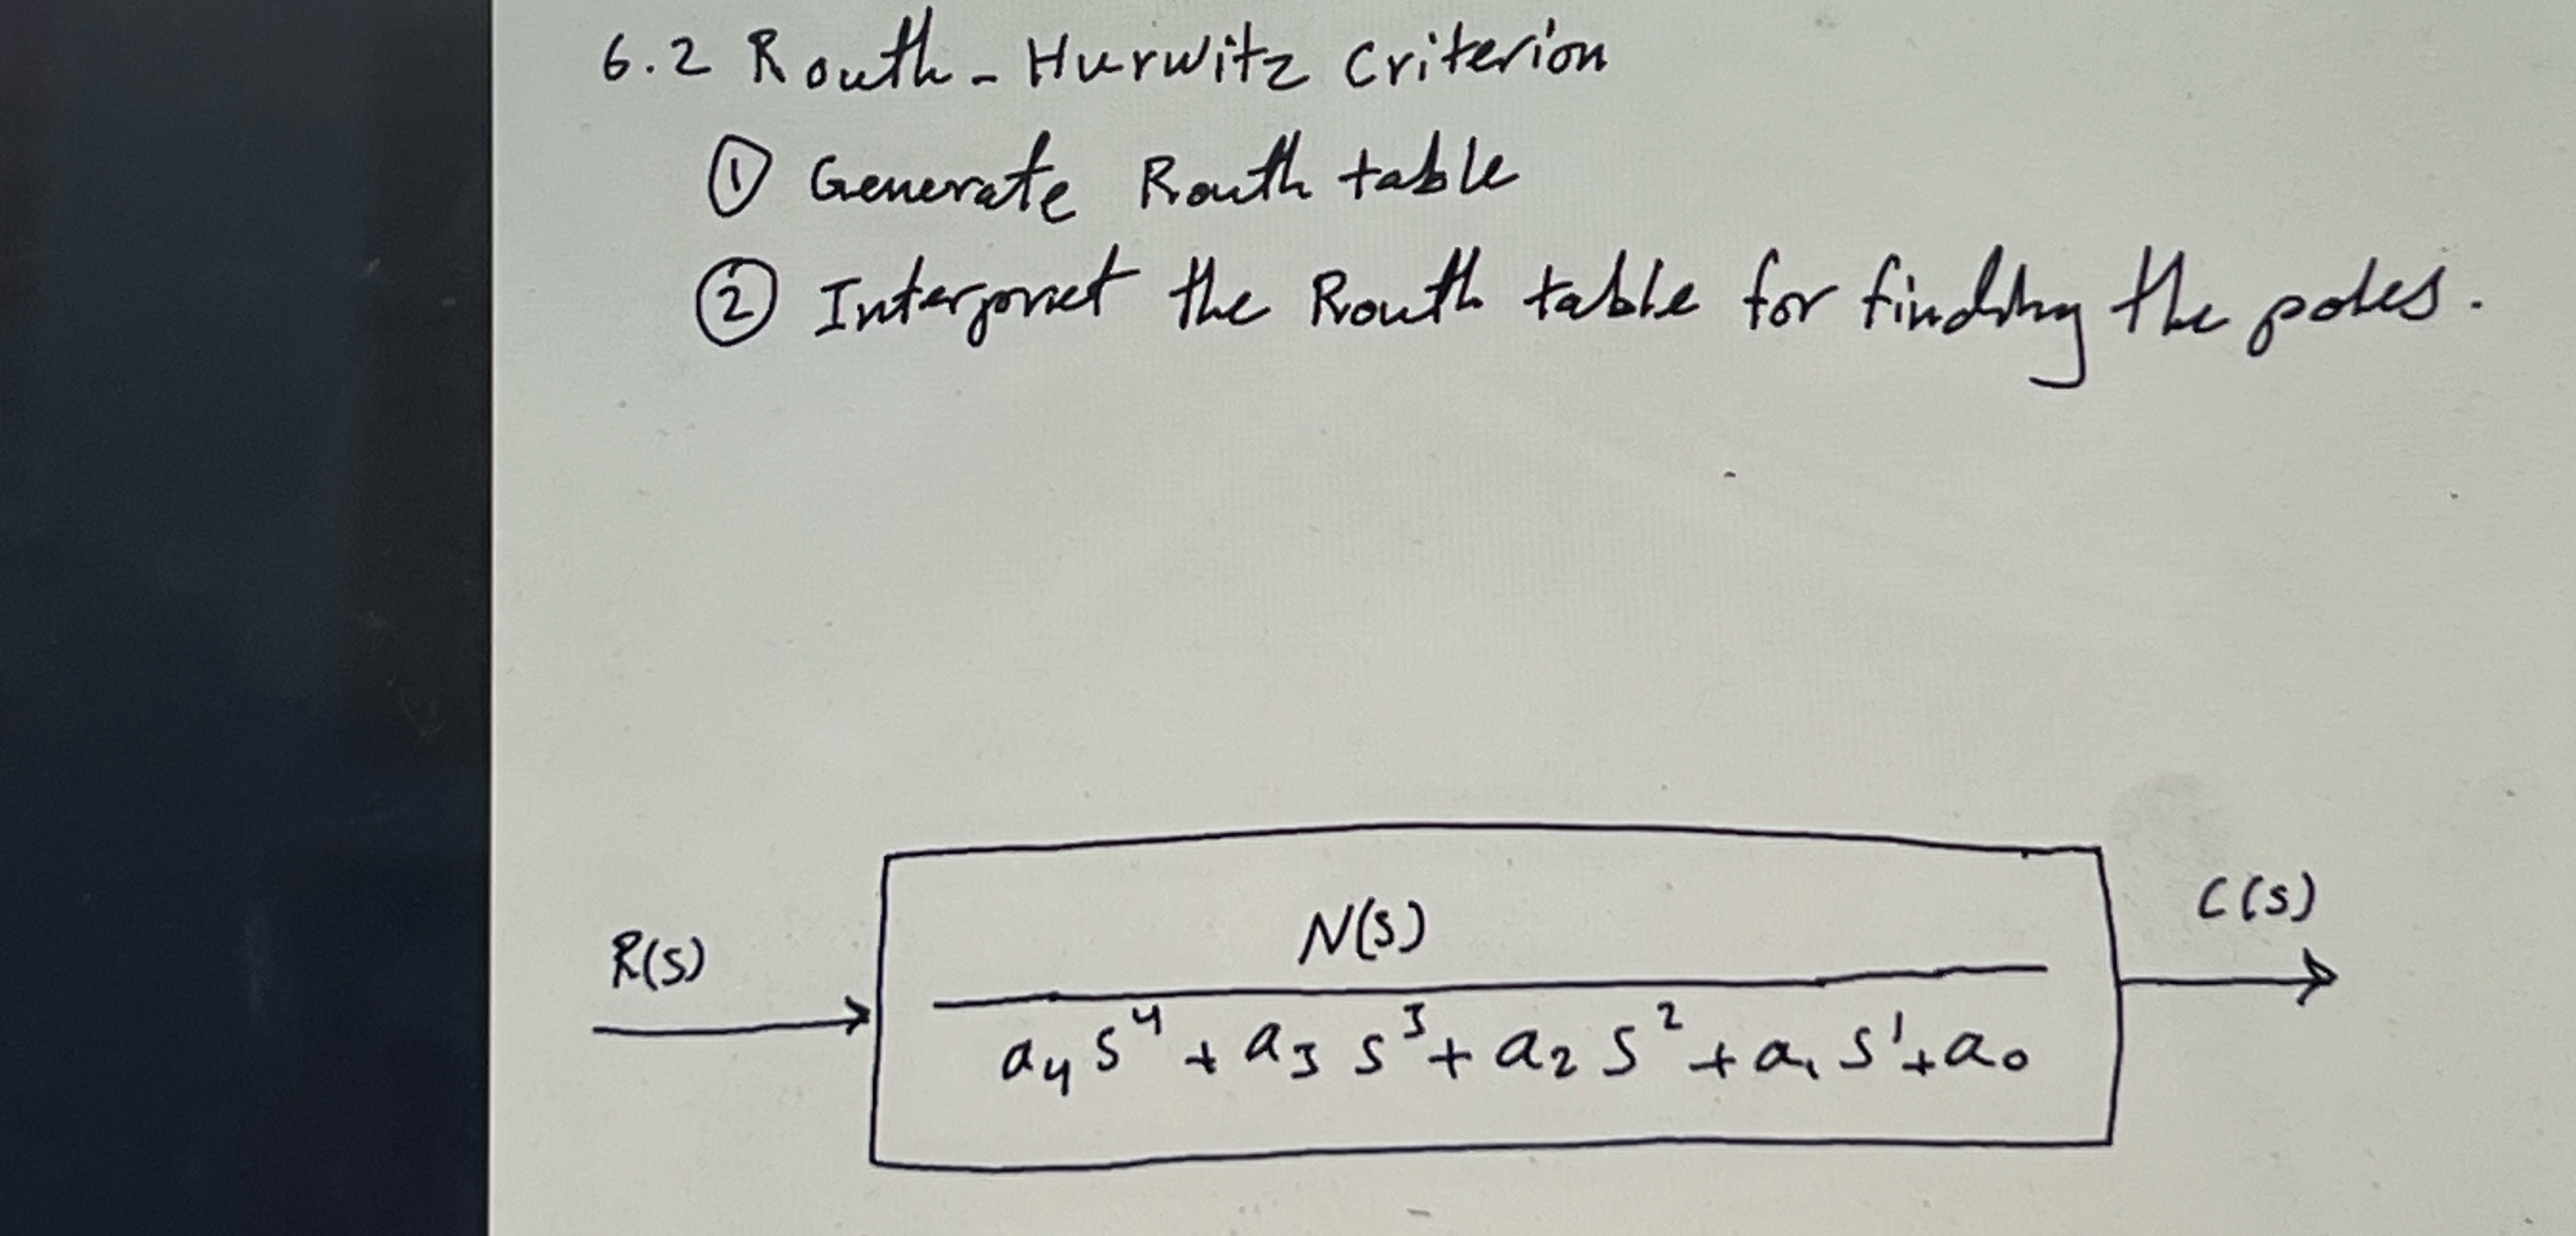 6.2 Routh-Hurwitz Criterion
① Generate Routh table
② Interpret the Routh table for finding the poles.
R(s)
N(s)
a₄s⁴ + a₃s³ + a₂s² + a₁s¹ + a₀
C(s)